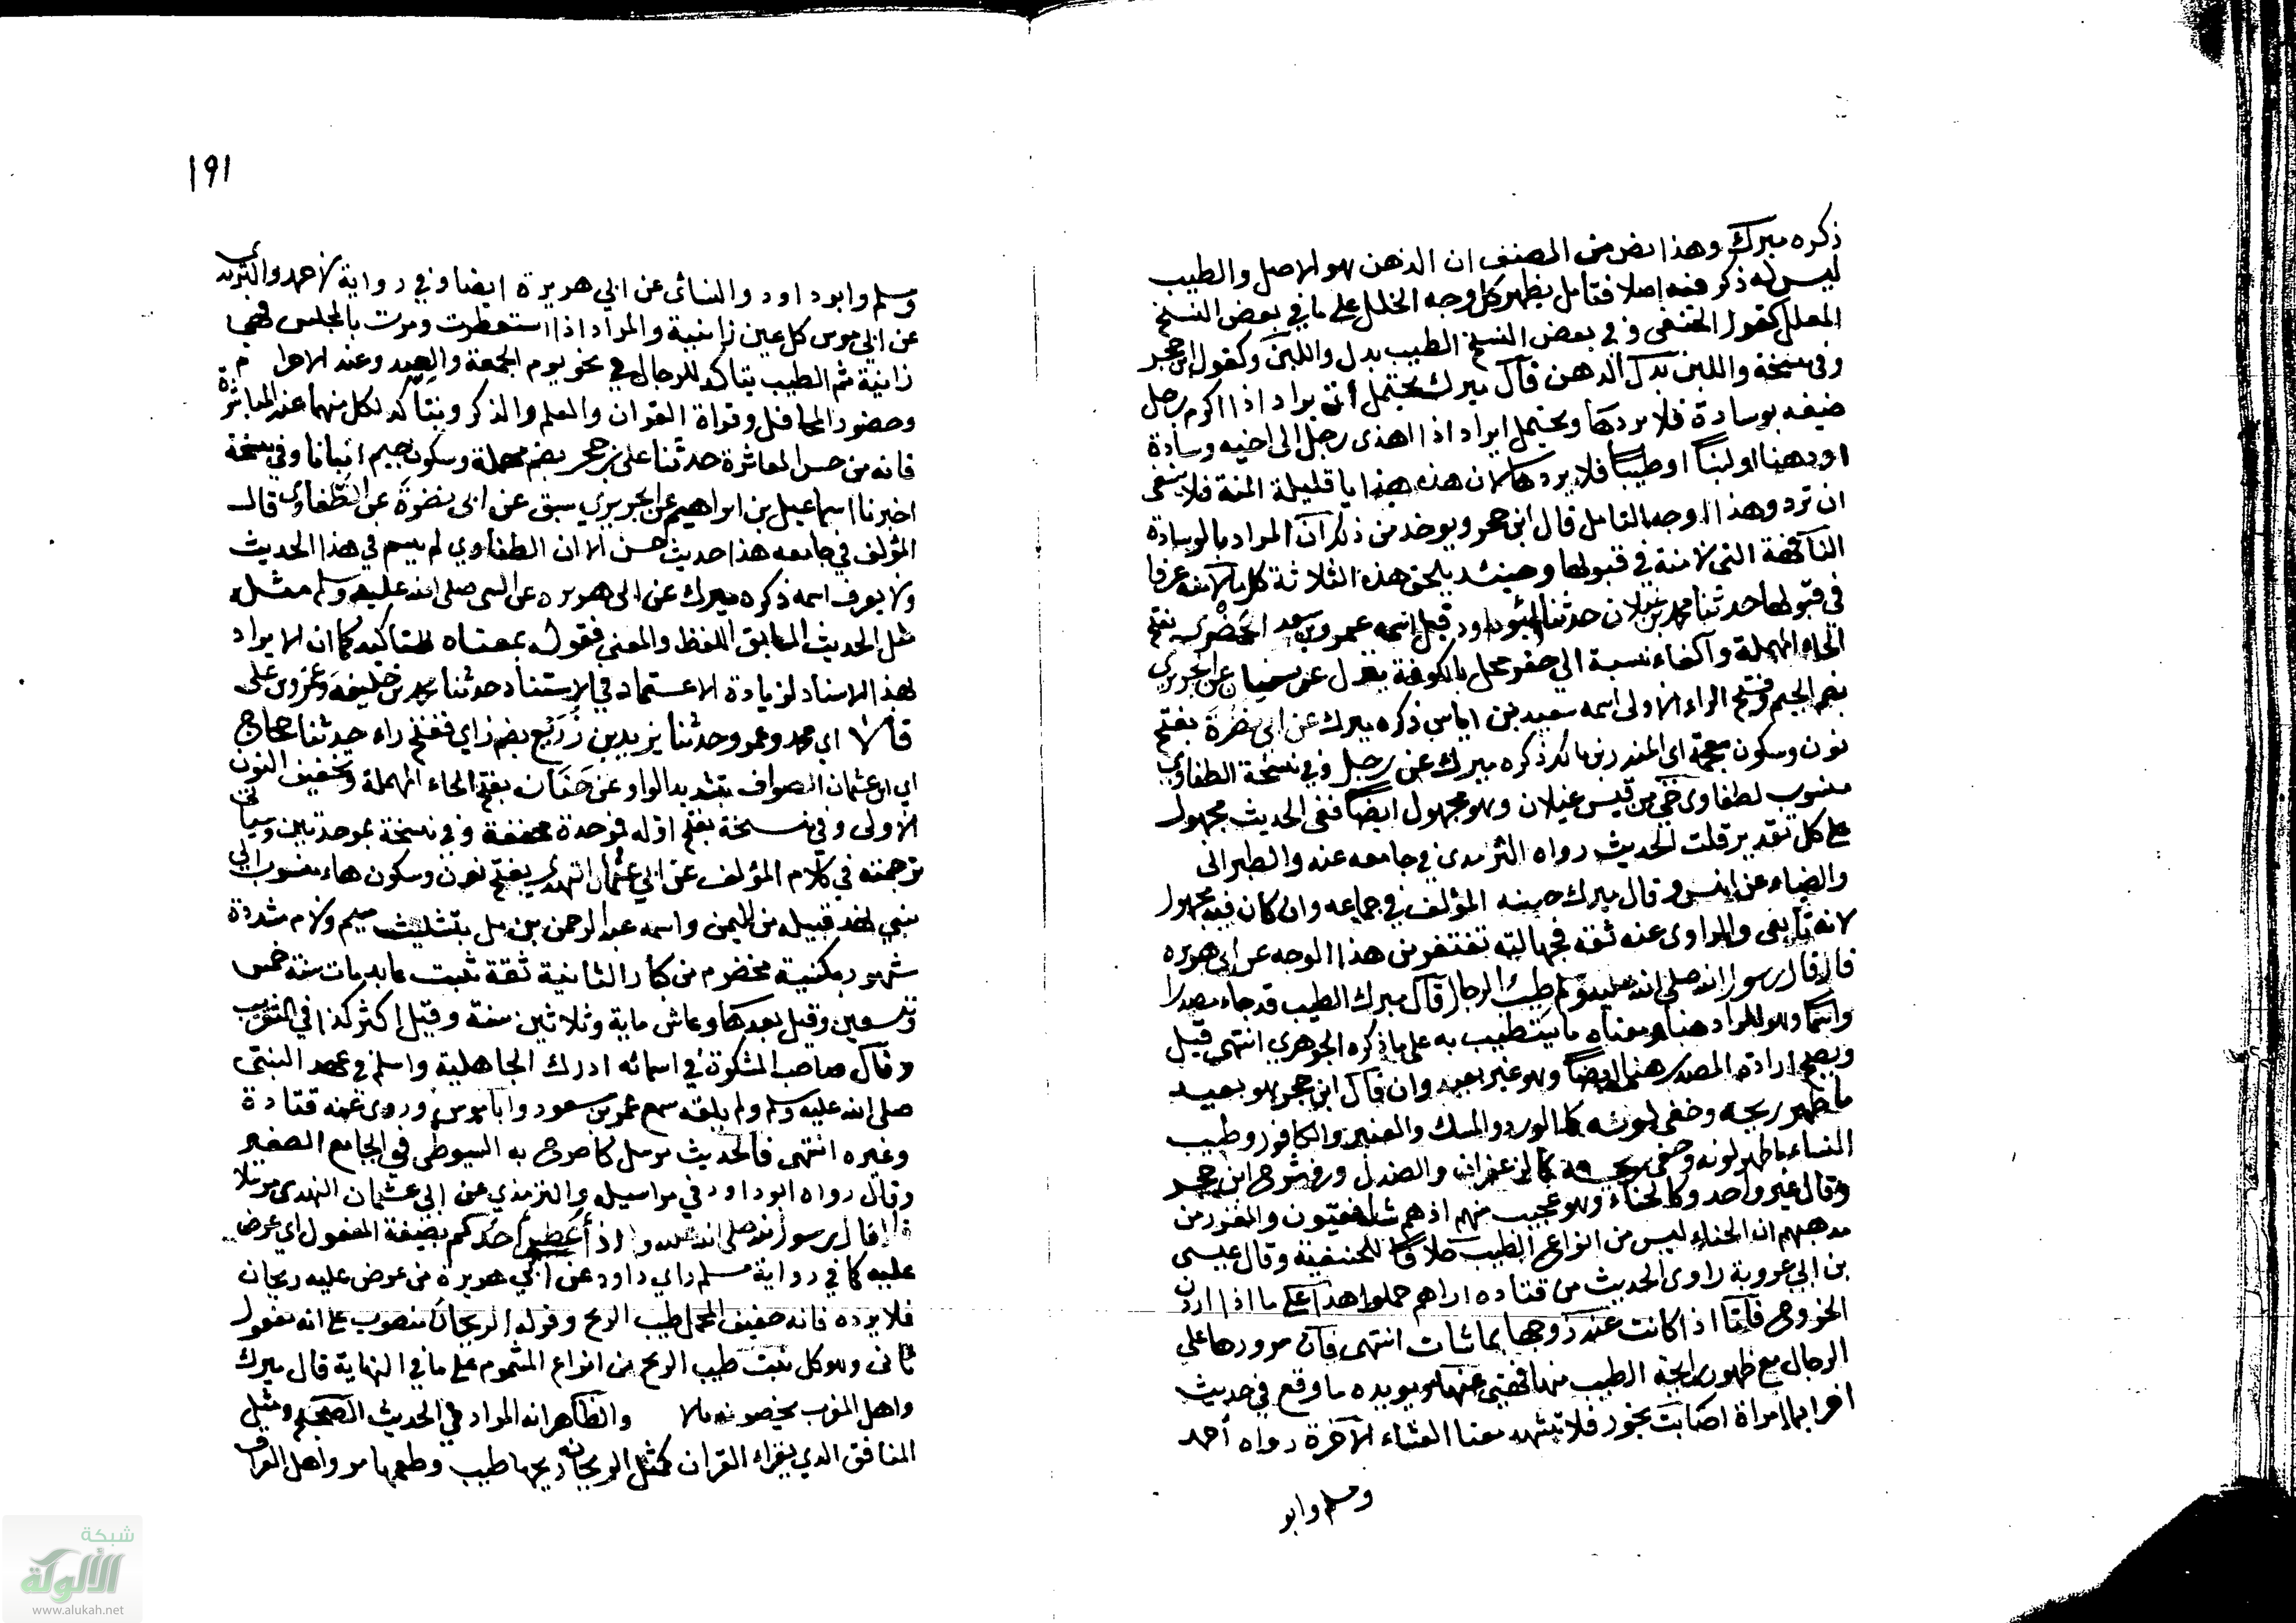 ذكره ميرك وهذا نص من المصنف ان الدهن هو الاصل والطيب
ليس له ذكر فيه اصلا فتامل يظهر لك وجه الخلل على ما في بعض النسخ
المعلل كقول الحنفي وفي بعض النسخ الطيب بدل واللبن وكقول ابن حجر
وفي نسخة واللبن بدل الدهن قال ميرك يحتمل أن يراد اذا اكرم رجل
ضيفه بوسادة فلا يردها ويحتمل ان يراد اذا اهدى رجل الى اخيه وسادة
او دهنا او لبنًا او طيبًا فلا يردها لان هذه هدايا قليلة المنة فلا ينبغي
ان ترد وهذا الوجه التامل قال ابن حجر ويوخذ من ذلك أن المراد بالوسادة
التافهة التي لا منة في قبولها وحينئذ يلحق هذه الثلاثة كل ما لا منه عرفا
في قبولها حدثنا محمود بن غيلان حدثنا ابو داود قيل اسمه عمر بن سعد الحَضَري بفتح
الحاء المهملة والفاء نسبة الى حفر محل بالكوفة يعدل عن سفيان عن الجريري
بضم الجيم وفتح الراء الاولى اسمه سعيد بن اياس ذكره ميرك عن ابي نضرة بفتح
نون وسكون معجمة اي المنذر بن مالك ذكره ميرك عن رجل وفي نسخة الطفاوي
منسوب لطفاوى حي من قيس عيلان وهو مجهول ايضًا ففى الحديث مجهول
على كل تقدير قلت الحديث رواه الترمذي في جامعه عنه والطبرانى
والضياء عن انس وقال ميرك حسنه المؤلف في جامعه وان كان فيه مجهول
لانه تابعي والراوى عنه ثقة فجهالته تغتفر من هذا الوجه عن ابي هريره
قال قال رسول الله صلى الله عليه وسلم طيب الرجال قال ميرك الطيب قد جاء مصدرا
واسمًا وهو المراد هنا ومعناه ما يتطيب به على ما ذكره الجوهري انتهى قيل
ويصح ارادة المصدر هنا ايضًا وهو غير بعيد وان قال ابن حجر هو بعيد
ما ظهر ريحه وخفى لونه كالورد والمسك والعنبر والكافور وطيب
النساء ما ظهر لونه وخفى ريحه كالزعفران والصندل وفي شرح ابن حجر
وقال غير واحد وكالحناء وهو عجيب منهم اذ هم شافعيون والمقرر من
مذهبهم ان الحناء ليس من انواع الطيب خلافًا للحنفية وقال عيسى
بن ابي عروبة راوى الحديث من قتاده اراهم حملوا هذا على ما اذا اردن
الخروج فأمّا اذا كانت عند زوجها بما شات انتهى فان مرورها على
الرجال مع ظهور رايحة الطيب منها فنهى عنها ويويده ما وقع في حديث
اخر ايما امراة اصابت بخور فلا تشهد معنا العشاء الآخرة رواه أحمد
ومسلم وابو
١٩١
ومسلم وابو داود والنسائى عن ابي هريرة ايضا وفي رواية لاحمد والترمذي
عن ابي موسى كل عين زانية والمراد اذا استعطرت ومرت بالمجلس فهي
زانية ثم الطيب يتاكد للرجال في نحو يوم الجمعة والعيد وعند الاحرام
وحضور المحافل وقراة القران والعلم والذكر ويتأكد لكل منهما عند المباشرة
فانه من حسن المعاشرة حدثنا على بن حجر بضم مهملة وسكون جيم انبانا وفي نسخة
اخبرنا اسماعيل بن ابراهيم عن الجريري سبق عن ابى نضرة عن الطفاوى قالـ
المؤلف في جامعه هذا حديث حسن الا ان الطفاوي لم يسم في هذا الحديث
ولا يعرف اسمه ذكره ميرك عن ابى هريره عن النبي صلى الله عليه وسلم مثله
مثل الحديث السابق اللفظ والمعنى فقوله بمعناه للتاكيد كما ان الايراد
بهذا الاسناد لزيادة الاعتماد في الاستناد حدثنا محمد بن خليفة وعمرو بن على
قالا اي محمد وعمرو حدثنا يزيد بن زُرَيع بضم زاي ففتح راء حدثنا حجاج
اي ابن عثمان الصواف بتشديد الواو عن حَنَان بفتح الحاء المهملة وتخفيف النون
الاولى وفي نسخة بفتح اوله فموحدة مخففة وفي نسخة بموحدتين وسياتى
ترجمته في كلام المؤلف عن ابي عثمان النهدى بفتح نون وسكون هاء منسوب الى
بني نهد قبيله من اليمن واسمه عبد الرحمن بن مل بتثليث ميم ولام مشددة
مشهور بكنيته مخضرم من كبار الثانية ثقة ثبت عابد مات سنة خمس
وتسعين وقيل بعدها وعاش ماية وثلاثين سنة وقيل اكثر كذا في التقريب
وقال صاحب المشكوة في اسمائه ادرك الجاهلية واسلم في عهد النبى
صلى الله عليه وسلم ولم يلقه سمع عمر بن سعود وابا موسى وروى عنه قتادة
وغيره انتهى فالحديث مرسل كما صرح به السيوطى في الجامع الصغير
وقال رواه ابو داود في مراسيله والترمذي عن ابي عثمان النهدى مرسلا
قال قال رسول الله صلى الله عليه وسلم اذا أُعطي أحدكم بصيغة المفعول اي عرض
عليه كما في رواية مسلم وابي داود عن ابي هريرة من عرض عليه ريحان
فلا يرده فانه خفيف المحمل طيب الريح وقوله الريحان منصوب على انه مفعول
ثانى وهو كل نبت طيب الريح من انواع المشموم على ما في النهاية قال ميرك
واهل المغرب يخصونه بالا والظاهر انه المراد في الحديث الصحيح ومثل
المنافق الدي يقراء القران كمثل الريحانه ريحها طيب وطعمها مر واهل العراق
شبكة
الألوكة
www.alukah.net